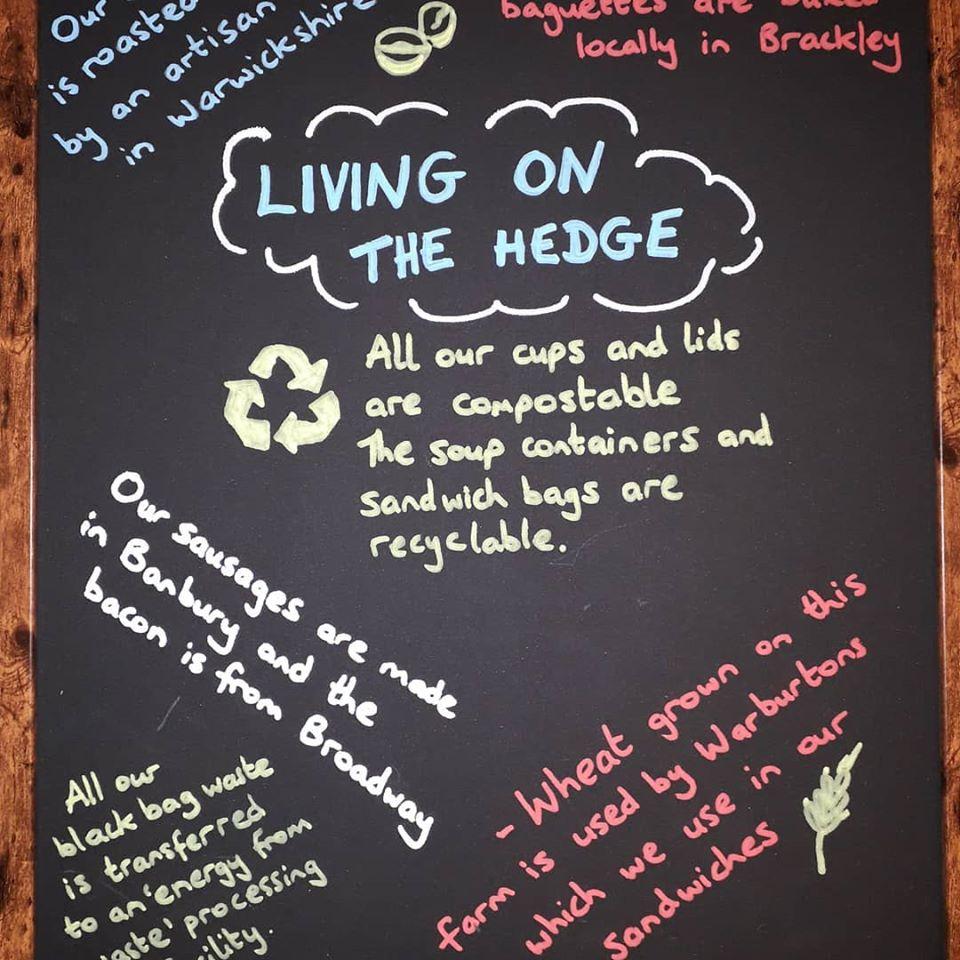 Our
is roasted
by an artisan
in Warwickshire
baguettes are baked
locally in Brackley
LIVING ON
THE HEDGE
All our cups and lids
are compostable
The soup containers and
sandwich bags are
recyclable.
Our sausages are made
in Banbury and the
bacon is from Broadway
- Wheat grown on this
farm is used by Warburtons
which we use in our
sandwiches
All our
black bag waste
is transferred
to an 'energy from
waste' processing
facility.